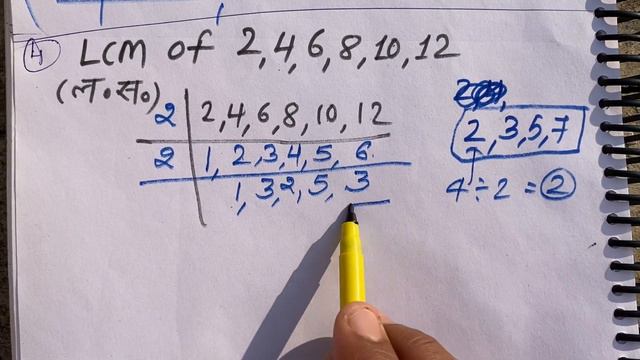 4 LCM of 2,4,6,8,10,12
(ल०स०)
2 2,4,6,8,10,12
2 1,2,3,4,5,6.
1,3,2,5,3
2,3,5,7
4÷2=2